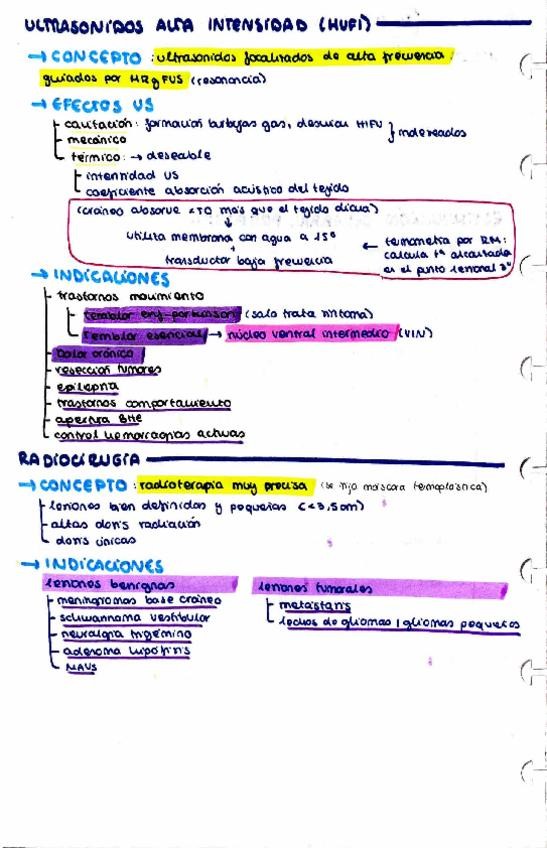 ULTRASONIDOS ALTA INTENSIDAD (HUFI)
→ CONCEPTO: ultrasonidos focalizados de alta frecuencia
guiados por MRgFUS (resonancia)
→ EFECTOS US
cavitación: formación burbujas gas, desvían HIFU } indeseados
mecánico
térmico: → deseable
intensidad US
coeficiente absorción acústico del tejido
(cráneo absorve ↑TQ más que el tejido diana)
↓
utiliza membrana con agua a 15º ← termometría por RM:
+ calcula tª alcanzada
transductor baja frecuencia en el punto lesional
→ INDICACIONES
trastornos movimiento
temblor enf. parkinson (solo trata síntoma)
Temblor esencial → núcleo ventral intermedio (VIN)
Dolor crónico
resección tumores
epilepsia
trastornos comportamiento
apertura BHE
control hemorragias activas
RADIOCIRUGÍA
→ CONCEPTO: radioterapia muy precisa (se fija máscara termoplásnica)
lesiones bien definidas y pequeñas (<3,5cm)
altas dosis radiación
dosis únicas
→ INDICACIONES
lesiones benignas lesiones tumorales
meningiomas base cráneo metástasis
schwannoma vestibular lechos de gliomas / gliomas pequeños
neuralgia trigémino
adenoma hipófisis
MAVS